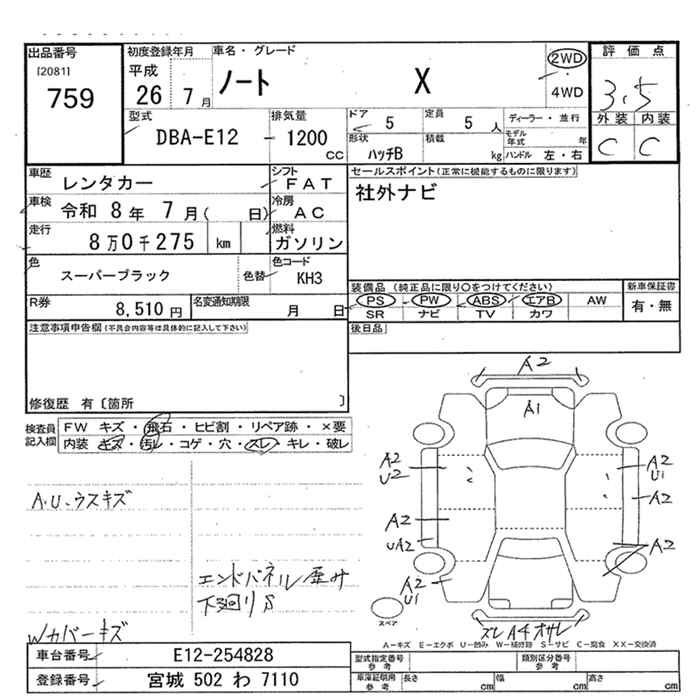 出品番号
[2081]
759
初度登録年月
平成
26 7月
車名・グレード
ノート X
2WD
4WD
評価点
3.5
外装 内装
C C
型式
DBA-E12
排気量
1200
CC
ドア 5
定員 5 人
形状 ハッチB
積載 kg
ディーラー・並行
モデル年式 年
ハンドル 左・右
車歴 レンタカー
シフト FAT
車検 令和 8年 7月( 日)
冷房 AC
走行 8万0千275 km
燃料 ガソリン
色 スーパーブラック 色替
色コード KH3
R券 8,510円
名変通知期限 月 日
セールスポイント(正常に機能するものに限ります)
社外ナビ
装備品 (純正品に限り〇をつけてください)
PS PW ABS エアB AW
SR ナビ TV カワ
新車保証書
有・無
後日品
注意事項申告欄(不具合内容等は具体的に記入して下さい)
修復歴 有〔箇所 〕
検査員記入欄
FW キズ・飛石・ヒビ割・リペア跡・×要
内装 キズ・汚レ・コゲ・穴・スレ・キレ・破レ
A.U.ウスキズ
エンドパネル歪み
下廻りS
Wカバーキズ
A2
A1
A2
U2
A2
UA2
A2
U1
A2
U1
A2
A2
ズレ A4 オサレ
スペア
A-キズ E-エクボ U-凹み W-補修跡 S-サビ C-腐食 XX-交換済
車台番号 E12-254828
登録番号 宮城 502 わ 7110
型式指定番号 参考
類別区分番号 参考
車庫証明用 参考
長さ cm 幅 cm 高さ cm